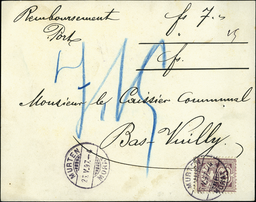 Remboursement fs 7.
Port 15
fs.
7.15
Monsieur le Caissier Communal
Bas-Vuilly.
MURTEN
MURTEN